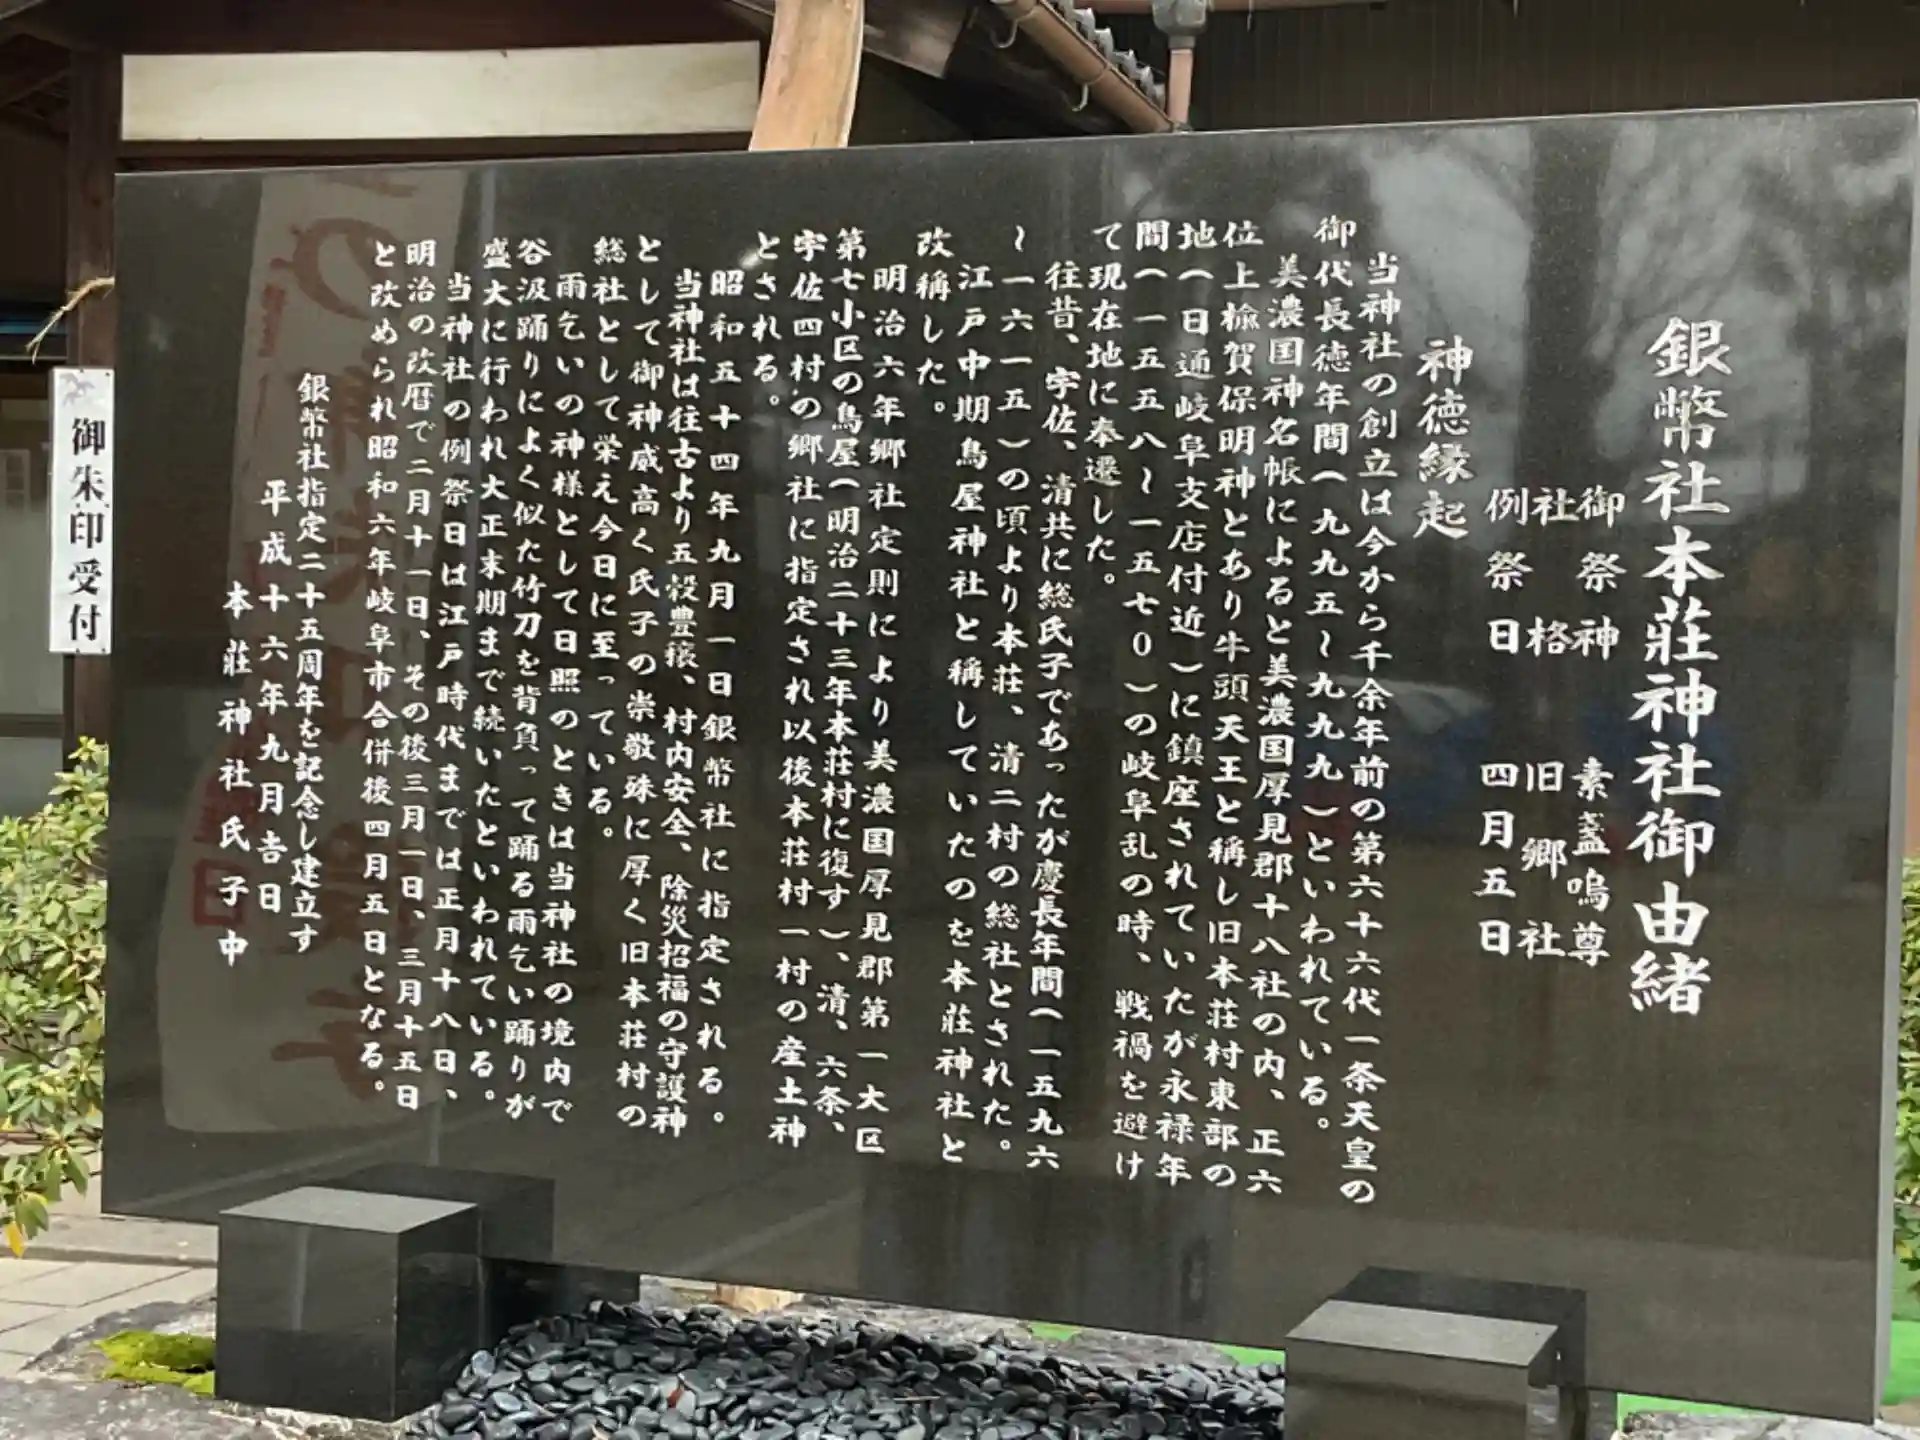 銀幣社本荘神社御由緒
御祭神 素盞嗚尊
社格 旧郷社
例祭日 四月五日
神徳縁起
当神社の創立は今から千余年前の第六十六代一条天皇の
御代長徳年間(九九五~九九九)といわれている。
美濃国神名帳によると美濃国厚見郡十八社の内、正六
位上楡賀保明神とあり牛頭天王と稱し旧本荘村東部の
地(日通岐阜支店付近)に鎮座されていたが永禄年
間(一五五八~一五七0)の岐阜乱の時、戦禍を避け
て現在地に奉遷した。
往昔、宇佐、清共に総氏子であったが慶長年間(一五九六
~一六一五)の頃より本荘、清二村の総社とされた。
江戸中期鳥屋神社と稱していたのを本荘神社と
改稱した。
明治六年郷社定則により美濃国厚見郡第一大区
第七小区の鳥屋(明治二十三年本荘村に復す)、清、六条、
宇佐四村の郷社に指定され以後本荘村一村の産土神
とされる。
昭和五十四年九月一日銀幣社に指定される。
当神社は往古より五穀豊穣、村内安全、除災招福の守護神
として御神威高く氏子の崇敬殊に厚く旧本荘村の
総社として栄え今日に至っている。
雨乞いの神様として日照のときは当神社の境内で
谷汲踊りによく似た竹刀を背負って踊る雨乞い踊りが
盛大に行われ大正末期まで続いたといわれている。
当神社の例祭日は江戸時代までは正月十八日、
明治の改暦で二月十一日、その後三月一日、三月十五日
と改められ昭和六年岐阜市合併後四月五日となる。
銀幣社指定二十五周年を記念し建立す
平成十六年九月吉日
本荘神社氏子中
御朱印受付